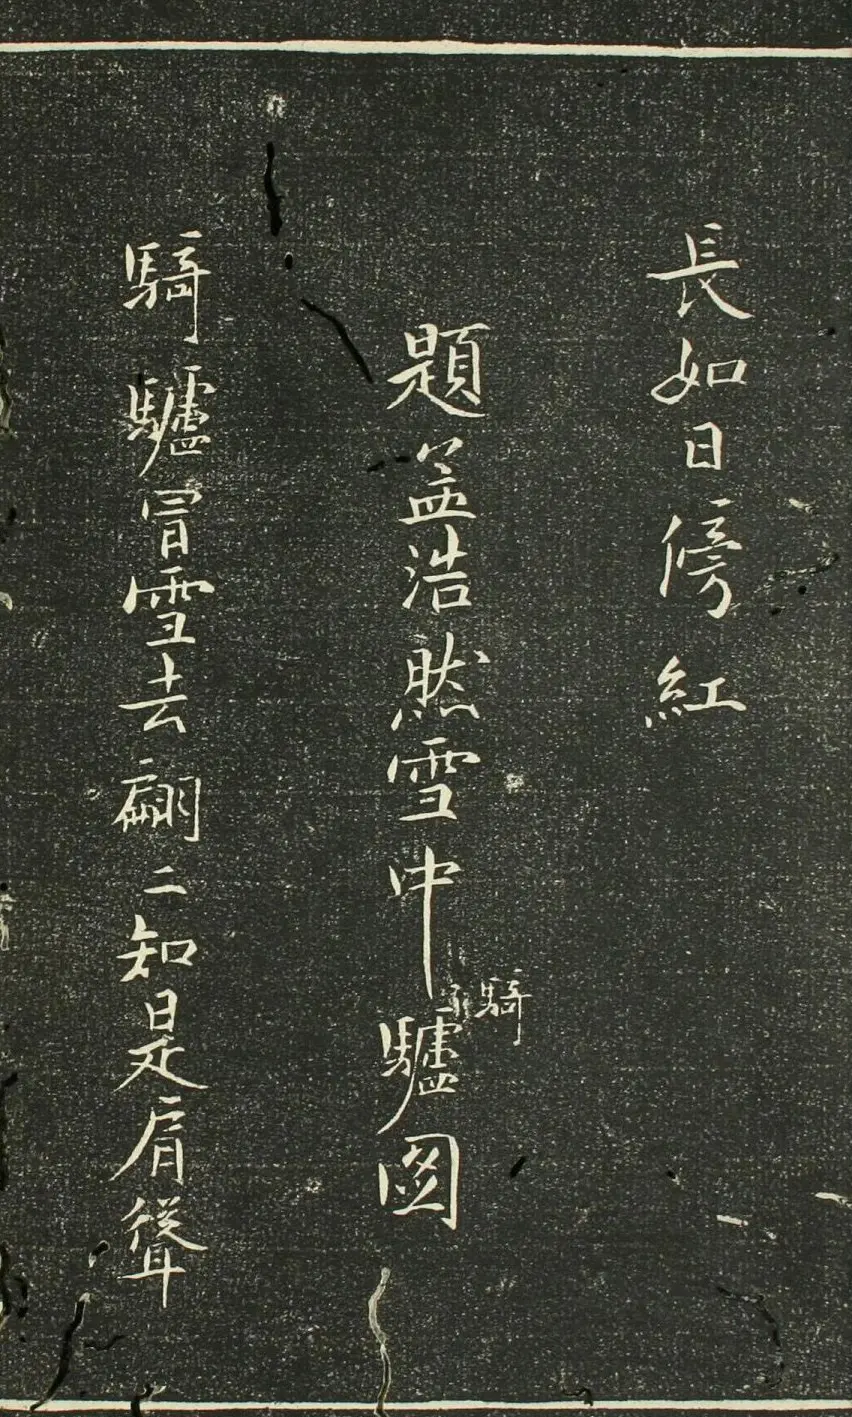 長如日傍紅
題孟浩然雪中騎驢圖
騎驢冒雪去翩二知是肩聳